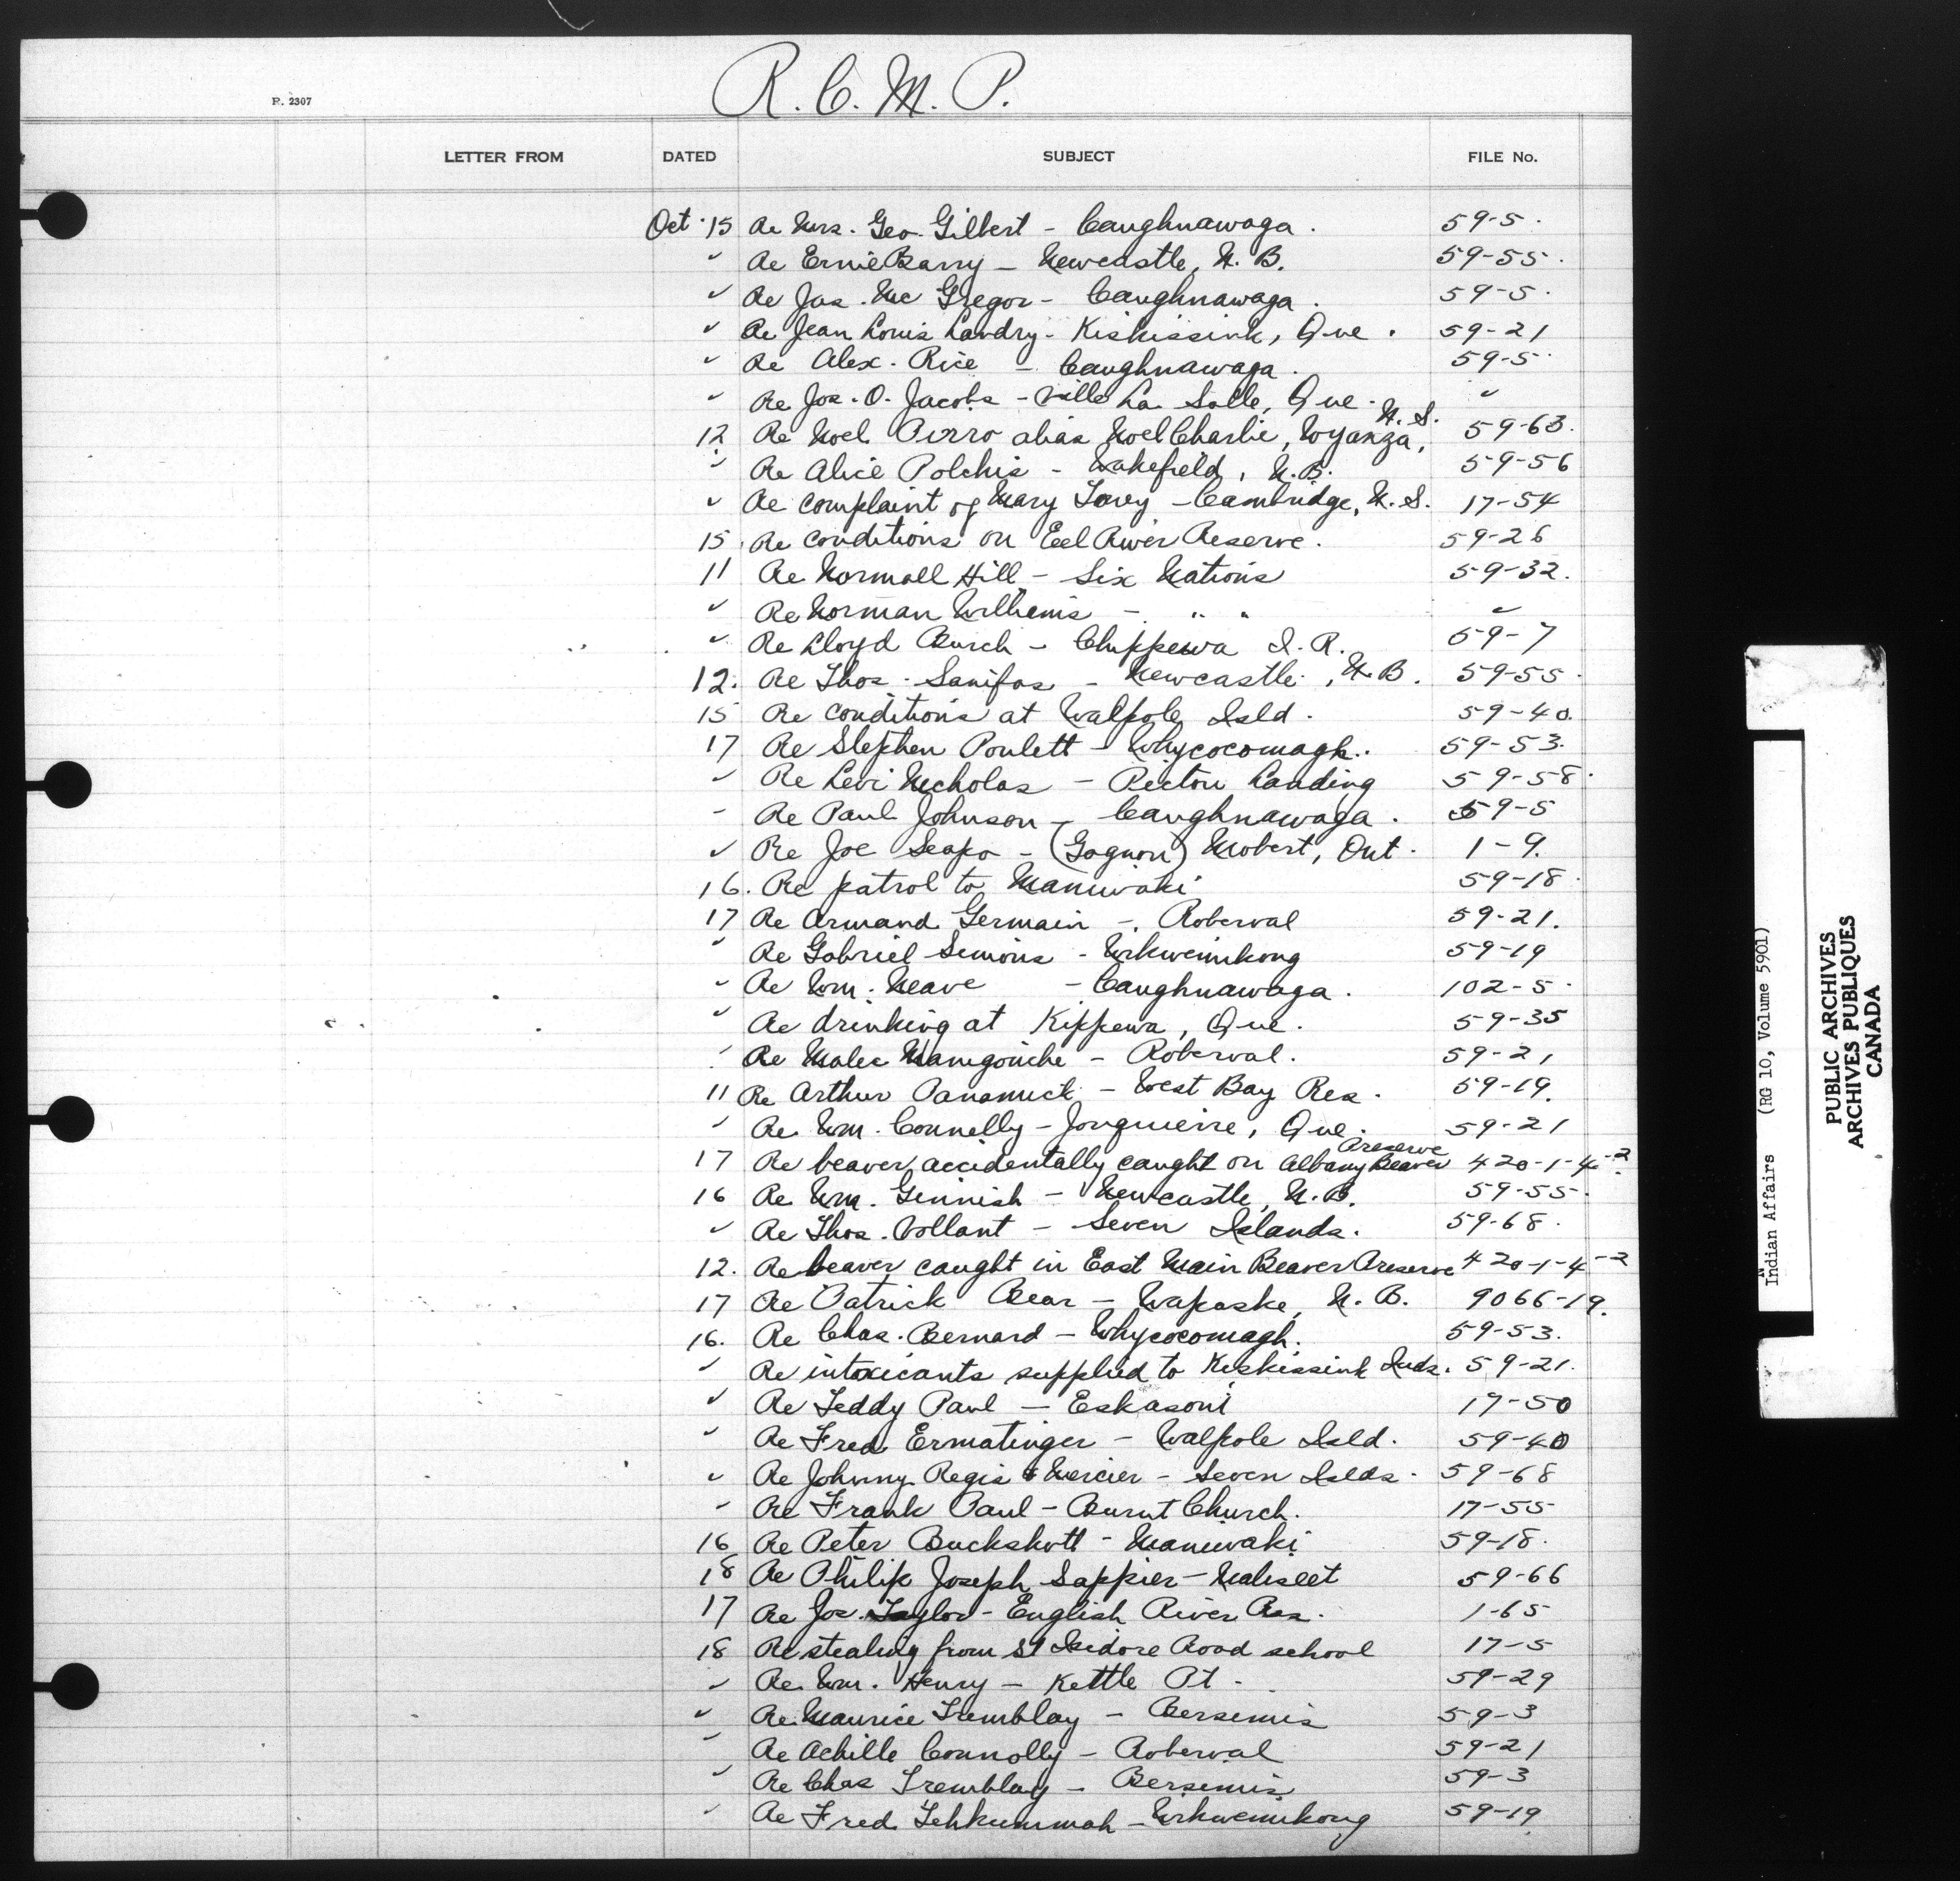 R. C. M. P.
R. 2307
LETTER FROM DATED SUBJECT FILE No.
Oct. 15 Re Mrs. Geo. Gilbert - Caughnawaga. 59-5.
" Re Ernie Barry - Newcastle, N. B. 59-55.
" Re Jas. Mc Gregor - Caughnawaga. 59-5.
" Re Jean Louis Landry - Kiskissink, Que. 59-21
" Re Alex. Rice - Caughnawaga. 59-5.
" Re Jos. O. Jacobs - Ville La Salle, Que. "
12 Re Noel Pirro alias Noel Charlie, Wyanza, N. S. 59-63.
" Re Alice Polchis - Wakefield, N. B. 59-56
" Re complaint of Mary Toney - Cambridge, N. S. 17-54
15 Re conditions on Eel River Reserve. 59-26
11 Re Normall Hill - Six Nations 59-32.
" Re Norman Williams - " " "
" Re Lloyd Burch - Chippewa I. R. 59-7
12. Re Thos. Sanifas - Newcastle, N. B. 59-55.
15 Re conditions at Walpole Isld. 59-40.
17 Re Stephen Poulett - Whycocomagh. 59-53.
" Re Levi Nicholas - Pictou Landing 59-58.
" Re Paul Johnson - Caughnawaga. 59-5
" Re Joe Seapo - (Gagnon) Mobert, Ont. 1-9.
16. Re patrol to Maniwaki 59-18.
17 Re Armand Germain - Roberval 59-21.
" Re Gabriel Simons - Wikwemikong 59-19
" Re Wm. Neave - Caughnawaga. 102-5.
" Re drinking at Kippewa, Que. 59-35
" Re Malec Manigouche - Roberval. 59-21
11 Re Arthur Panamick - West Bay Res. 59-19.
" Re Wm. Connelly - Jonquiere, Que. 59-21
17 Re beaver accidentally caught on Albany Beaver Preserve 420-1-4-2.
16 Re Wm. Ginnish - Newcastle, N. B. 59-55.
" Re Thos. Vollant - Seven Islands. 59-68.
12. Re beaver caught in East Main Beaver Preserve 420-1-4-2
17 Re Patrick Bear - Wapaske, N. B. 9066-19.
16. Re Chas. Bernard - Whycocomagh. 59-53.
" Re intoxicants supplied to Kiskissink Inds. 59-21.
" Re Teddy Paul - Eskasoni 17-50
" Re Fred Ermatinger - Walpole Isld. 59-40
" Re Johnny Regis & Mercier - Seven Islds. 59-68
" Re Frank Paul - Burnt Church. 17-55
16 Re Peter Buckshott - Maniwaki 59-18.
18 Re Philip Joseph Sappier - Maliseet 59-66
17 Re Jos. Taylor - English River Res. 1-65
18 Re stealing from St Isidore Road school 17-5
" Re Wm. Henry - Kettle Pt. 59-29
" Re Maurice Tremblay - Bersimis 59-3
" Re Achille Connolly - Roberval 59-21
" Re Chas Tremblay - Bersimis 59-3
" Re Fred Tehkummah - Wikwemikong 59-19
Indian Affairs (RG 10, Volume 5901)
PUBLIC ARCHIVES
ARCHIVES PUBLIQUES
CANADA